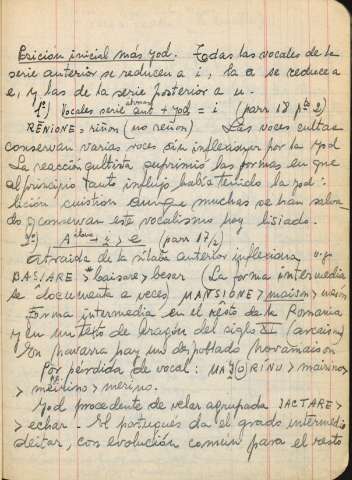 Posición inicial más yod. Todas las vocales de la
serie anterior se reducen a i, la a se reduce a
e, y las de la serie posterior a u.
1º) Vocales serie ant + yod = i (parr 18 pto 2)
RENIONE = riñon (no reñon) Las voces cultas
conservan varias voces sin inflexionar por la yod
La reacción cultista suprimió las formas en que
al principio tanto influjo había tenido la yod:
lición cuistion aunque muchas se han salva-
do y conservan este vocalismo hoy lisiado.
2º) A > e (parr 17/2)
atraida de la sílaba anterior inflexiona v.g.
BASIARE > *baisare > besar (La forma intermedia
se documenta a veces) MANSIONE > maison > mesón
Forma intermedia en el resto de la Romania
y en un texto de Aragón del siglo XI (arcaísmo)
En navarra hay un despoblado Novamaison
Por pérdida de vocal: MAJ(O)RINU > mairino >
> meirino > merino.
Yod procedente de velar agrupada JACTARE >
> echar. El portugués da el grado intermedio
deitar, con evolución común para el resto